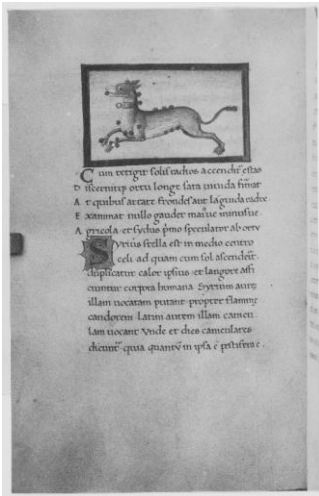 Cum tetigit solis radios accendit' estas
Discernitq; ortu longe sata viuida firmat
At quibus artatȩ frondes aut languida radix
Exanimat nullo gaudet maiusue minusue
Agricola et sydus p̄mo speculatur ab ortu
Syrius stella est in medio centro
celi ad quam cum sol ascenderit
duplicatur calor ipsius et langore affi
ciuntur corpora humana Syrium autē
illam uocatam putant propter flammę
candorem Latini autem illam canicu
lam uocant Vnde et dies caniculares
dicunt' quia quantū in ipsa ē pestifera ē.